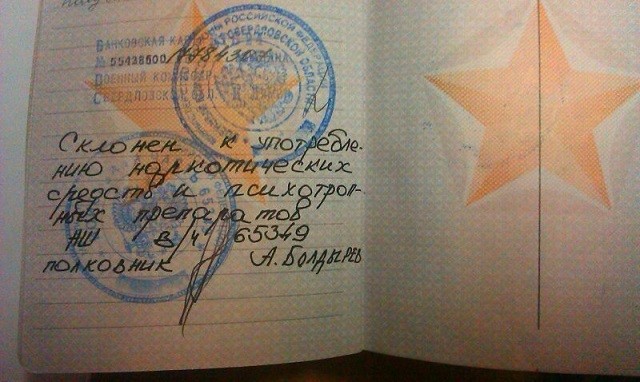 БАНКОВСКАЯ КАР
№ 55438600
ВОЕННЫЙ КОМИССАР
СВЕРДЛОВСКО
РОССИЙСКОЙ ФЕДЕРАЦИИ
СВЕРДЛОВСКОЙ ОБЛАСТИ
Склонен к употребле-
нию наркотических
средств и психотроп-
ных препаратов
НШ в/ч 65349
полковник А. Болдырев